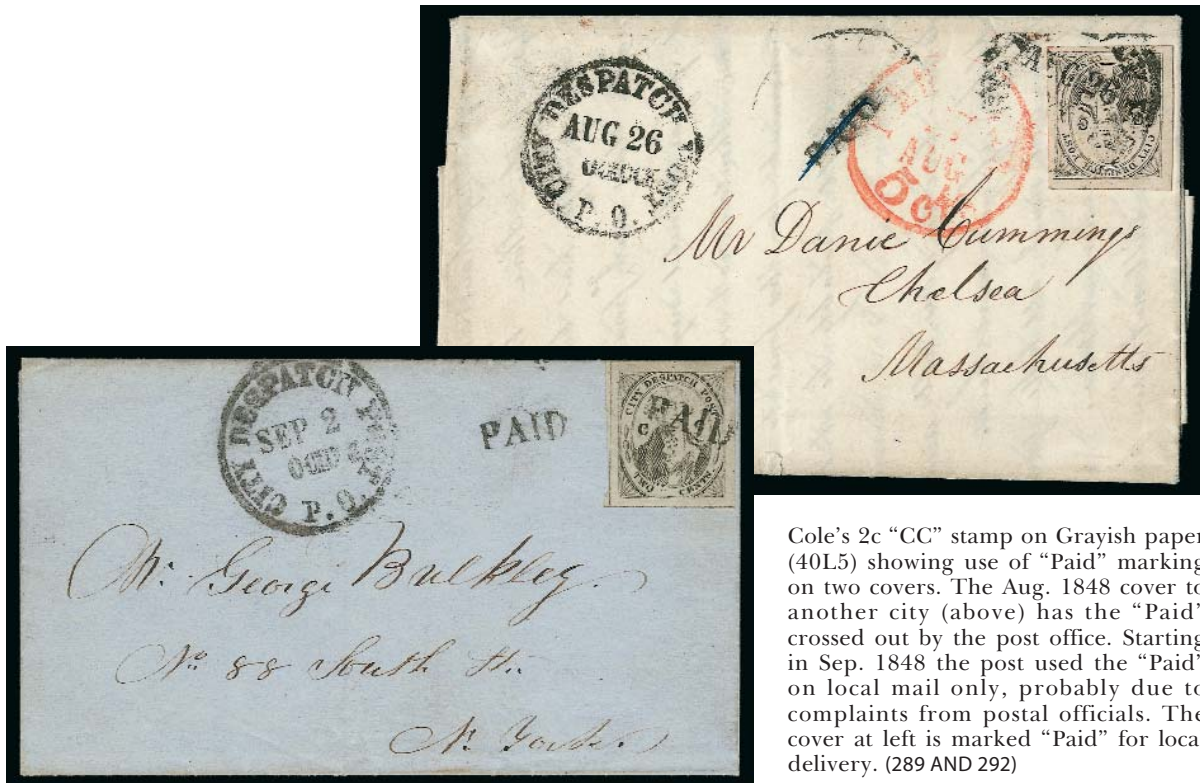 CITY DESPATCH POST
AUG 26
O'CLOCK
P. O.
PAID
AUG
5 cts
CITY DESPATCH POST
Mr Danie Cummings
Chelsea
Massachusetts
CITY DESPATCH POST
SEP 2
P. O.
PAID
CITY DESPATCH POST
C
PAID
TWO CENTS
Mr. George Bulkley.
No 88 South St.
N. York.
Cole's 2c “CC” stamp on Grayish paper
(40L5) showing use of “Paid” marking
on two covers. The Aug. 1848 cover to
another city (above) has the “Paid”
crossed out by the post office. Starting
in Sep. 1848 the post used the “Paid”
on local mail only, probably due to
complaints from postal officials. The
cover at left is marked “Paid” for local
delivery. (289 AND 292)